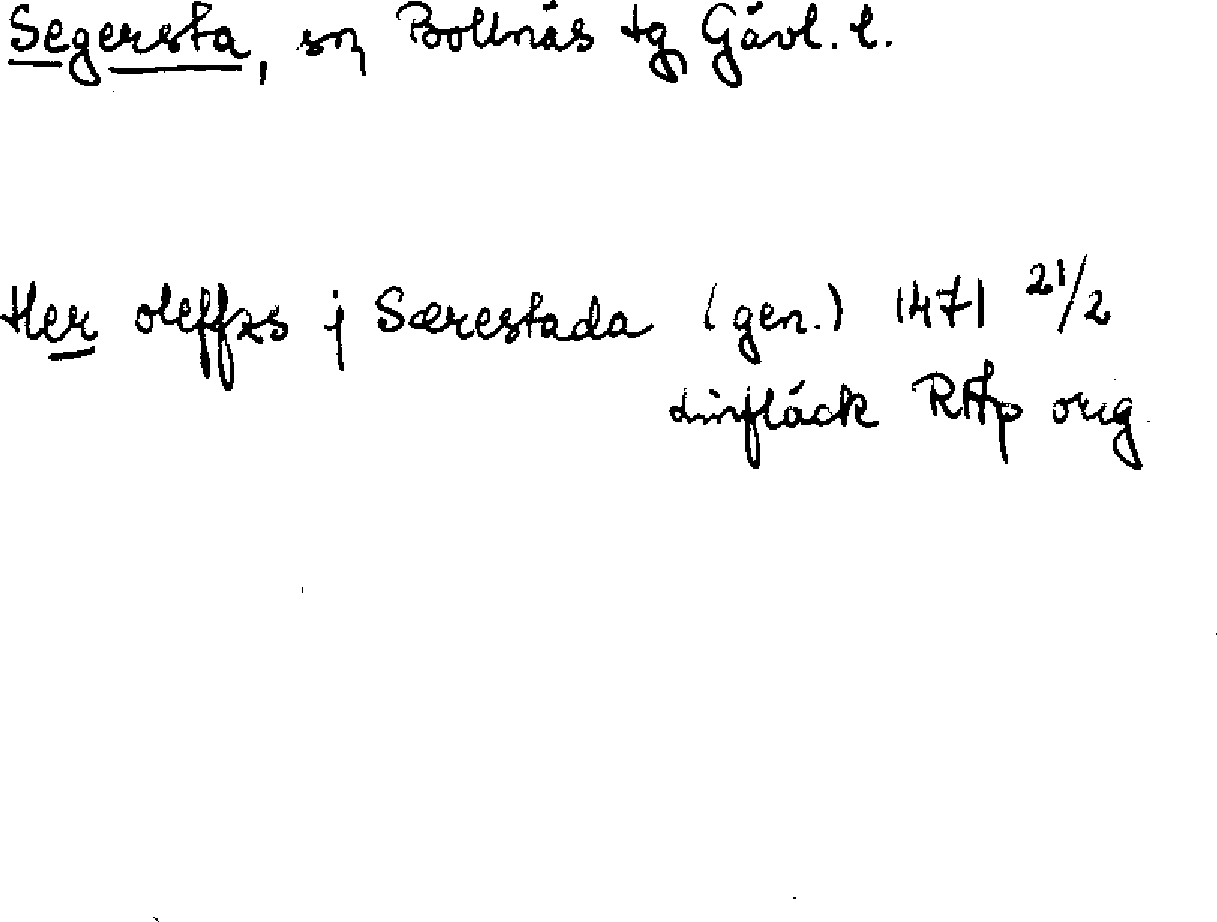 Segersta, sn, Bollnäs tg Gävl. l.
Her oleffzs j Særestada (gen.) 1471 21/2
Linfläck RAp orig